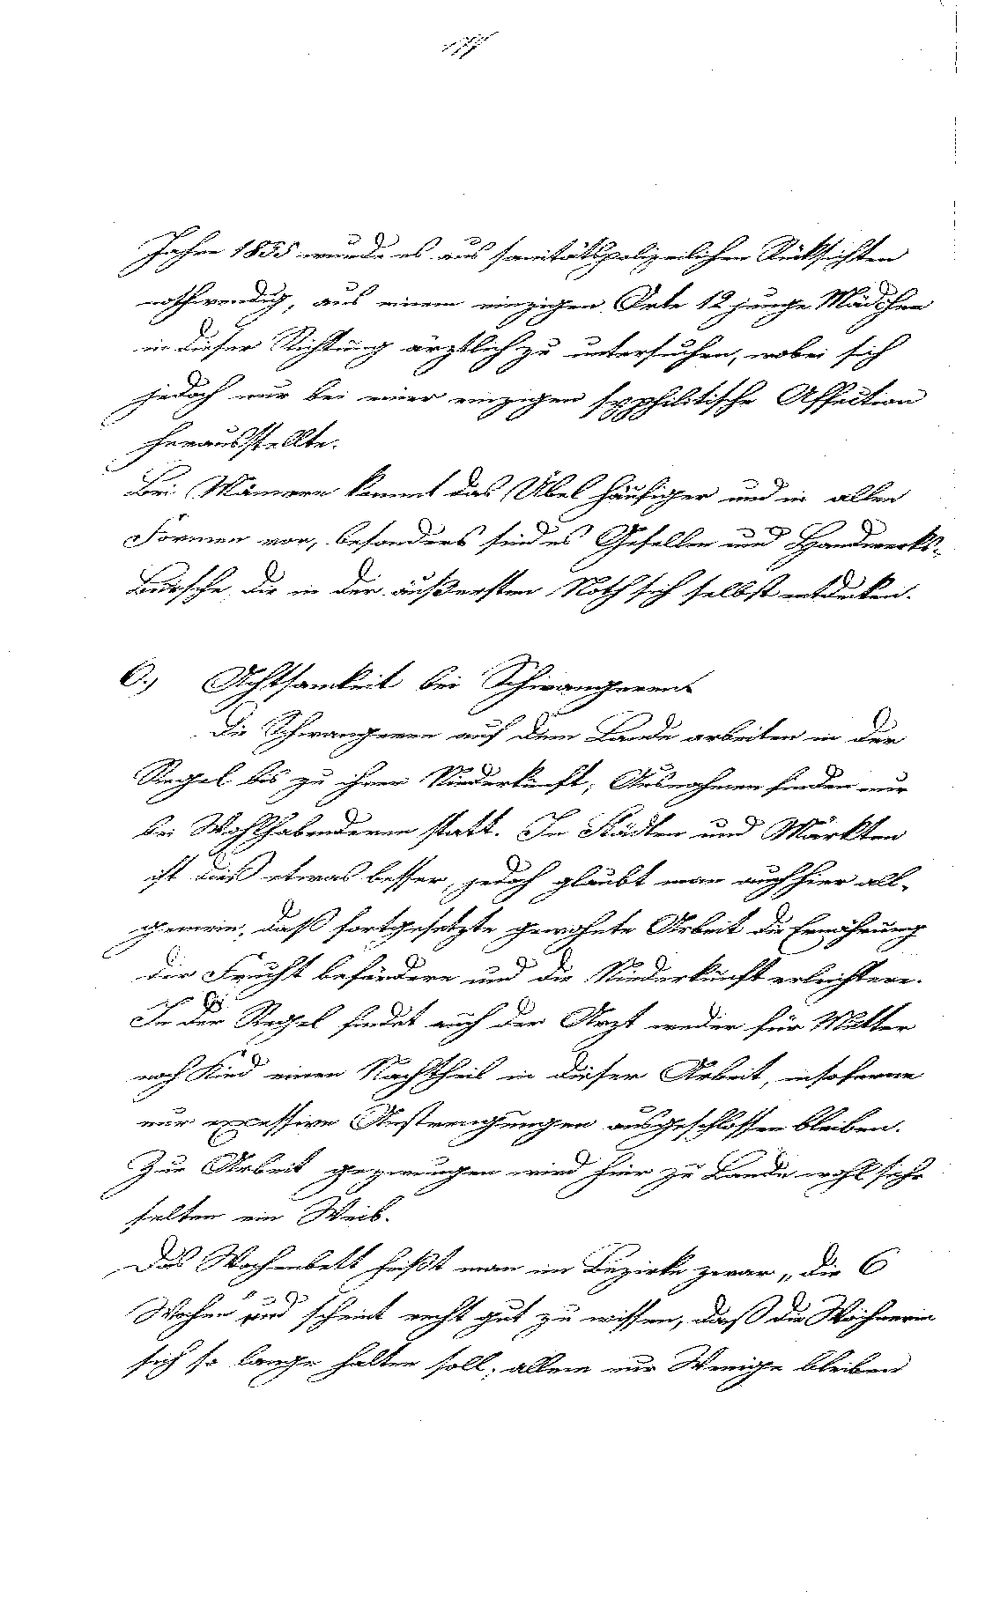 177
Jahre 1855 wurde es aus sanitätspolizeilichen Rücksichten
nothwendig, aus einem einzigen Orte 12 junge Mädchen
in dieser Richtung ärztlich zu untersuchen, wobei sich
jedoch nur bei einer einzigen syphilitische Affection
herausstellte.
Bei Männern kommt das Übel häufiger und in allen
Formen vor, besonders sind es Gesellen und Handwerks-
Bursche, die in der äußersten Noth sich selbst entdecken.
6.) Achtsamkeit bei Schwangeren
Die Schwangeren auf dem Lande arbeiten in der
Riegel bis zu ihrer Niederkunft; Ausnahmen finden nur
bei Wohlhabenderen statt. In Städten und Märkten
ist dieß etwas besser, jedoch glaubt man auch hier all-
gemein, daß fortgesetzte gewohnte Arbeit die Ernährung
der Frucht befördere und die Niederkunft erleichtere.
In der Regel findet auch der Arzt weder für Mutter
noch Kind einen Nachtheil in dieser Arbeit, insoferne
nur excessive Anstrengungen ausgeschlossen bleiben.
Zur Arbeit gezwungen wird hier zu Lande wohl sehr
selten ein Weib.
Das Wochenbett heißt man im Bezirke zwar „die 6
Wochen" und scheint recht gut zu wissen, daß die Wöchnerin
sich so lange halten soll; allein nur Wenige bleiben